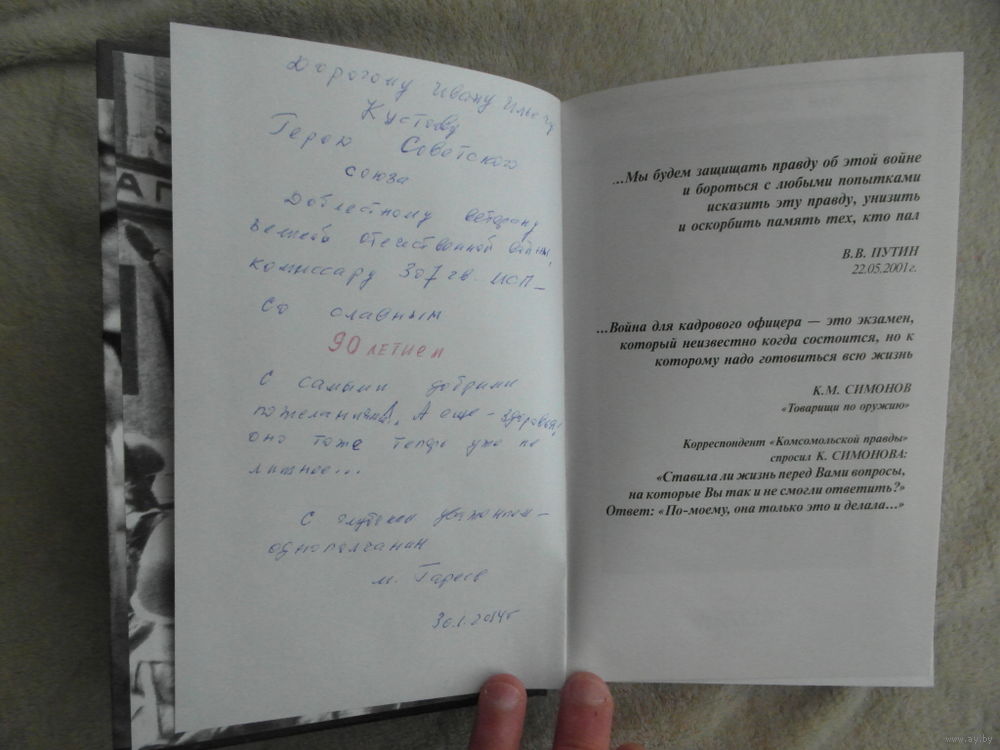 АП
Дорогому Ивану Ильичу
Кустову
Герою Советского
союза
Доблестному ветерану
Великой отечественной войны,
комиссару 307 гв. ИСП –
со славным
90 летием
С самыми добрыми
пожеланиями. А еще – здоровья!
оно тоже теперь уже не
лишнее...
С глубоким уважением –
однополчанин
М. Гареев
30.1.2014г
...Мы будем защищать правду об этой войне
и бороться с любыми попытками
исказить эту правду, унизить
и оскорбить память тех, кто пал
В.В. ПУТИН
22.05.2001г.
...Война для кадрового офицера — это экзамен,
который неизвестно когда состоится, но к
которому надо готовиться всю жизнь
К.М. СИМОНОВ
«Товарищи по оружию»
Корреспондент «Комсомольской правды»
спросил К. СИМОНОВА:
«Ставила ли жизнь перед Вами вопросы,
на которые Вы так и не смогли ответить?»
Ответ: «По-моему, она только это и делала...»
www.ay.by